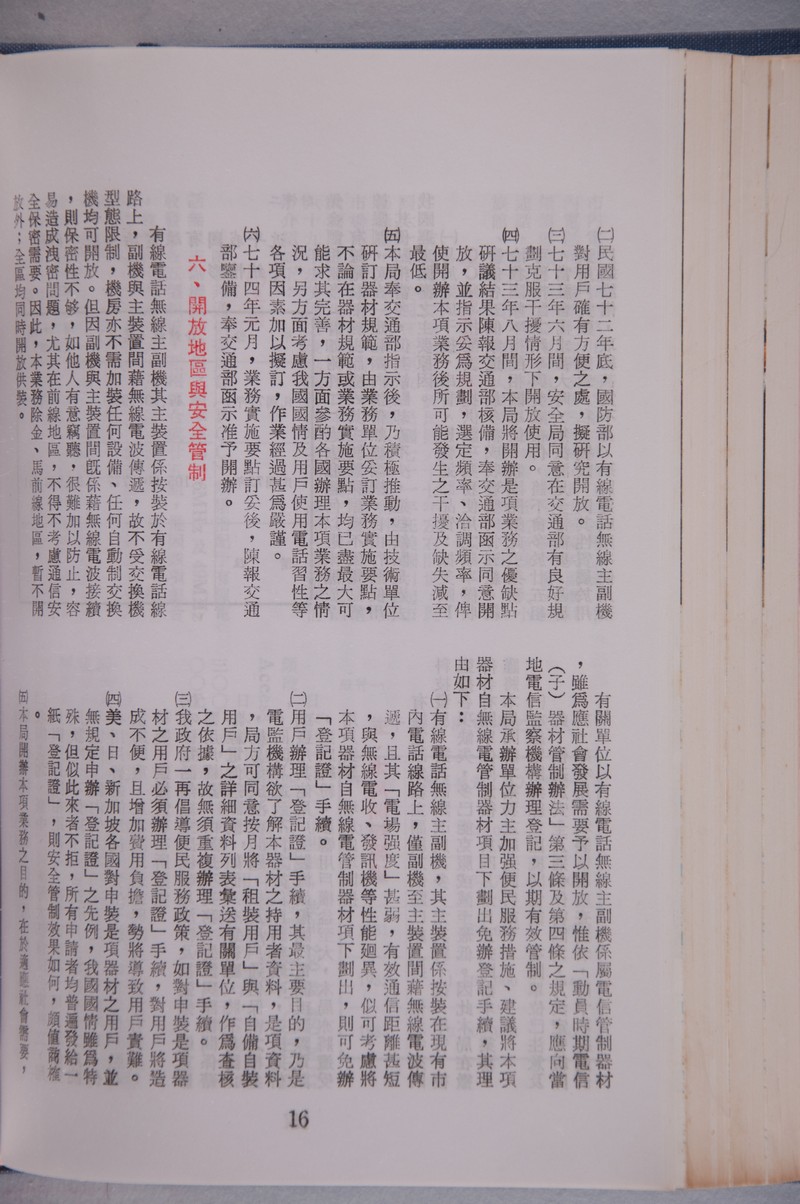 ㈡民國七十二年底，國防部以有線電話無線主副機
對用戶確有方便之處，擬研究開放。
㈢七十三年六月間，安全局同意在交通部有良好規
劃克服干擾情形下開放使用。
㈣七十三年八月間，本局將開辦是項業務之優缺點
研議結果陳報交通部核備，奉交通部函示同意開
放，並指示妥爲規劃，選定頻率、洽調頻率，俾
使開辦本項業務後所可能發生之干擾及缺失減至
最低。
㈤本局奉交通部指示後，乃積極推動，由技術單位
研訂器材規範，由業務單位妥訂業務實施要點，
不論在器材規範或業務實施要點，均已盡最大可
能求其完善，一方面參酌各國辦理本項業務之情
況，另方面考慮我國國情及用戶使用電話習性等
各項因素加以擬訂，作業經過甚爲嚴謹。
㈥七十四年元月，業務實施要點訂妥後，陳報交通
部鑒備，奉交通部函示准予開辦。
六、開放地區與安全管制
有線電話無線主副機其主裝置係按裝於有線電話線
路上，副機與主裝置間藉無線電波傳遞，故不受交換機
型態限制，機房亦不需加裝任何設備、任何自動制交換
機均可開放。但因副機與主裝置間既係藉無線電波接續
，則保密性不够，如他人有意竊聽，很難加以防止，容
易造成洩密問題，尤其在前線地區，不得不考慮通信安
全保密需要。因此，本業務除金、馬前線地區，暫不開
放外；全區均同時開放供裝。
有關單位以有線電話無線主副機係屬電信管制器材
，雖爲應社會發展需要予以開放，惟依「動員時期電信
（子）器材管制辦法」第三條及第四條之規定，應向當
地電信監察機構辦理登記，以期有效管制。
本局承辦單位力主加强便民服務措施、建議將本項
器材自無線電管制器材項目下劃出免辦登記手續，其理
由如下：
㈠有線電話無線主副機，其主裝置係按裝在現有市
內電話線路上，僅副機至主裝置間藉無線電波傳
遞，且其「電場强度」甚弱，有效通信距離甚短
，與無線電收、發訊機等性能廻異，似可考慮將
本項器材自無線電管制器材項下劃出，則可免辦
「登記證」手續。
㈡用戶辦理「登記證」手續，其最主要目的，乃是
電監機構欲了解本器材之持用者資料，是項資料
，局方可同意按月將「租裝用戶」與「自備自裝
用戶」之詳細資料列表彙送有關單位，作爲查核
之依據，故無須重複辦理「登記證」手續。
㈢我政府一再倡導便民服務政策，如對申裝是項器
材之用戶必須辦理「登記證」手續，對用戶將造
成不便，且增加費用負擔，勢將導致用戶責難。
㈣美、日、新加坡各國對申裝是項器材之用戶，並
無規定申辦「登記證」之先例，我國國情雖爲特
殊，但似此來者不拒，所有申請者均普遍發給一
紙「登記證」，則安全管制效果如何，頗值商榷
。
㈤本局開辦本項業務之目的，在於適應社會需要，
16